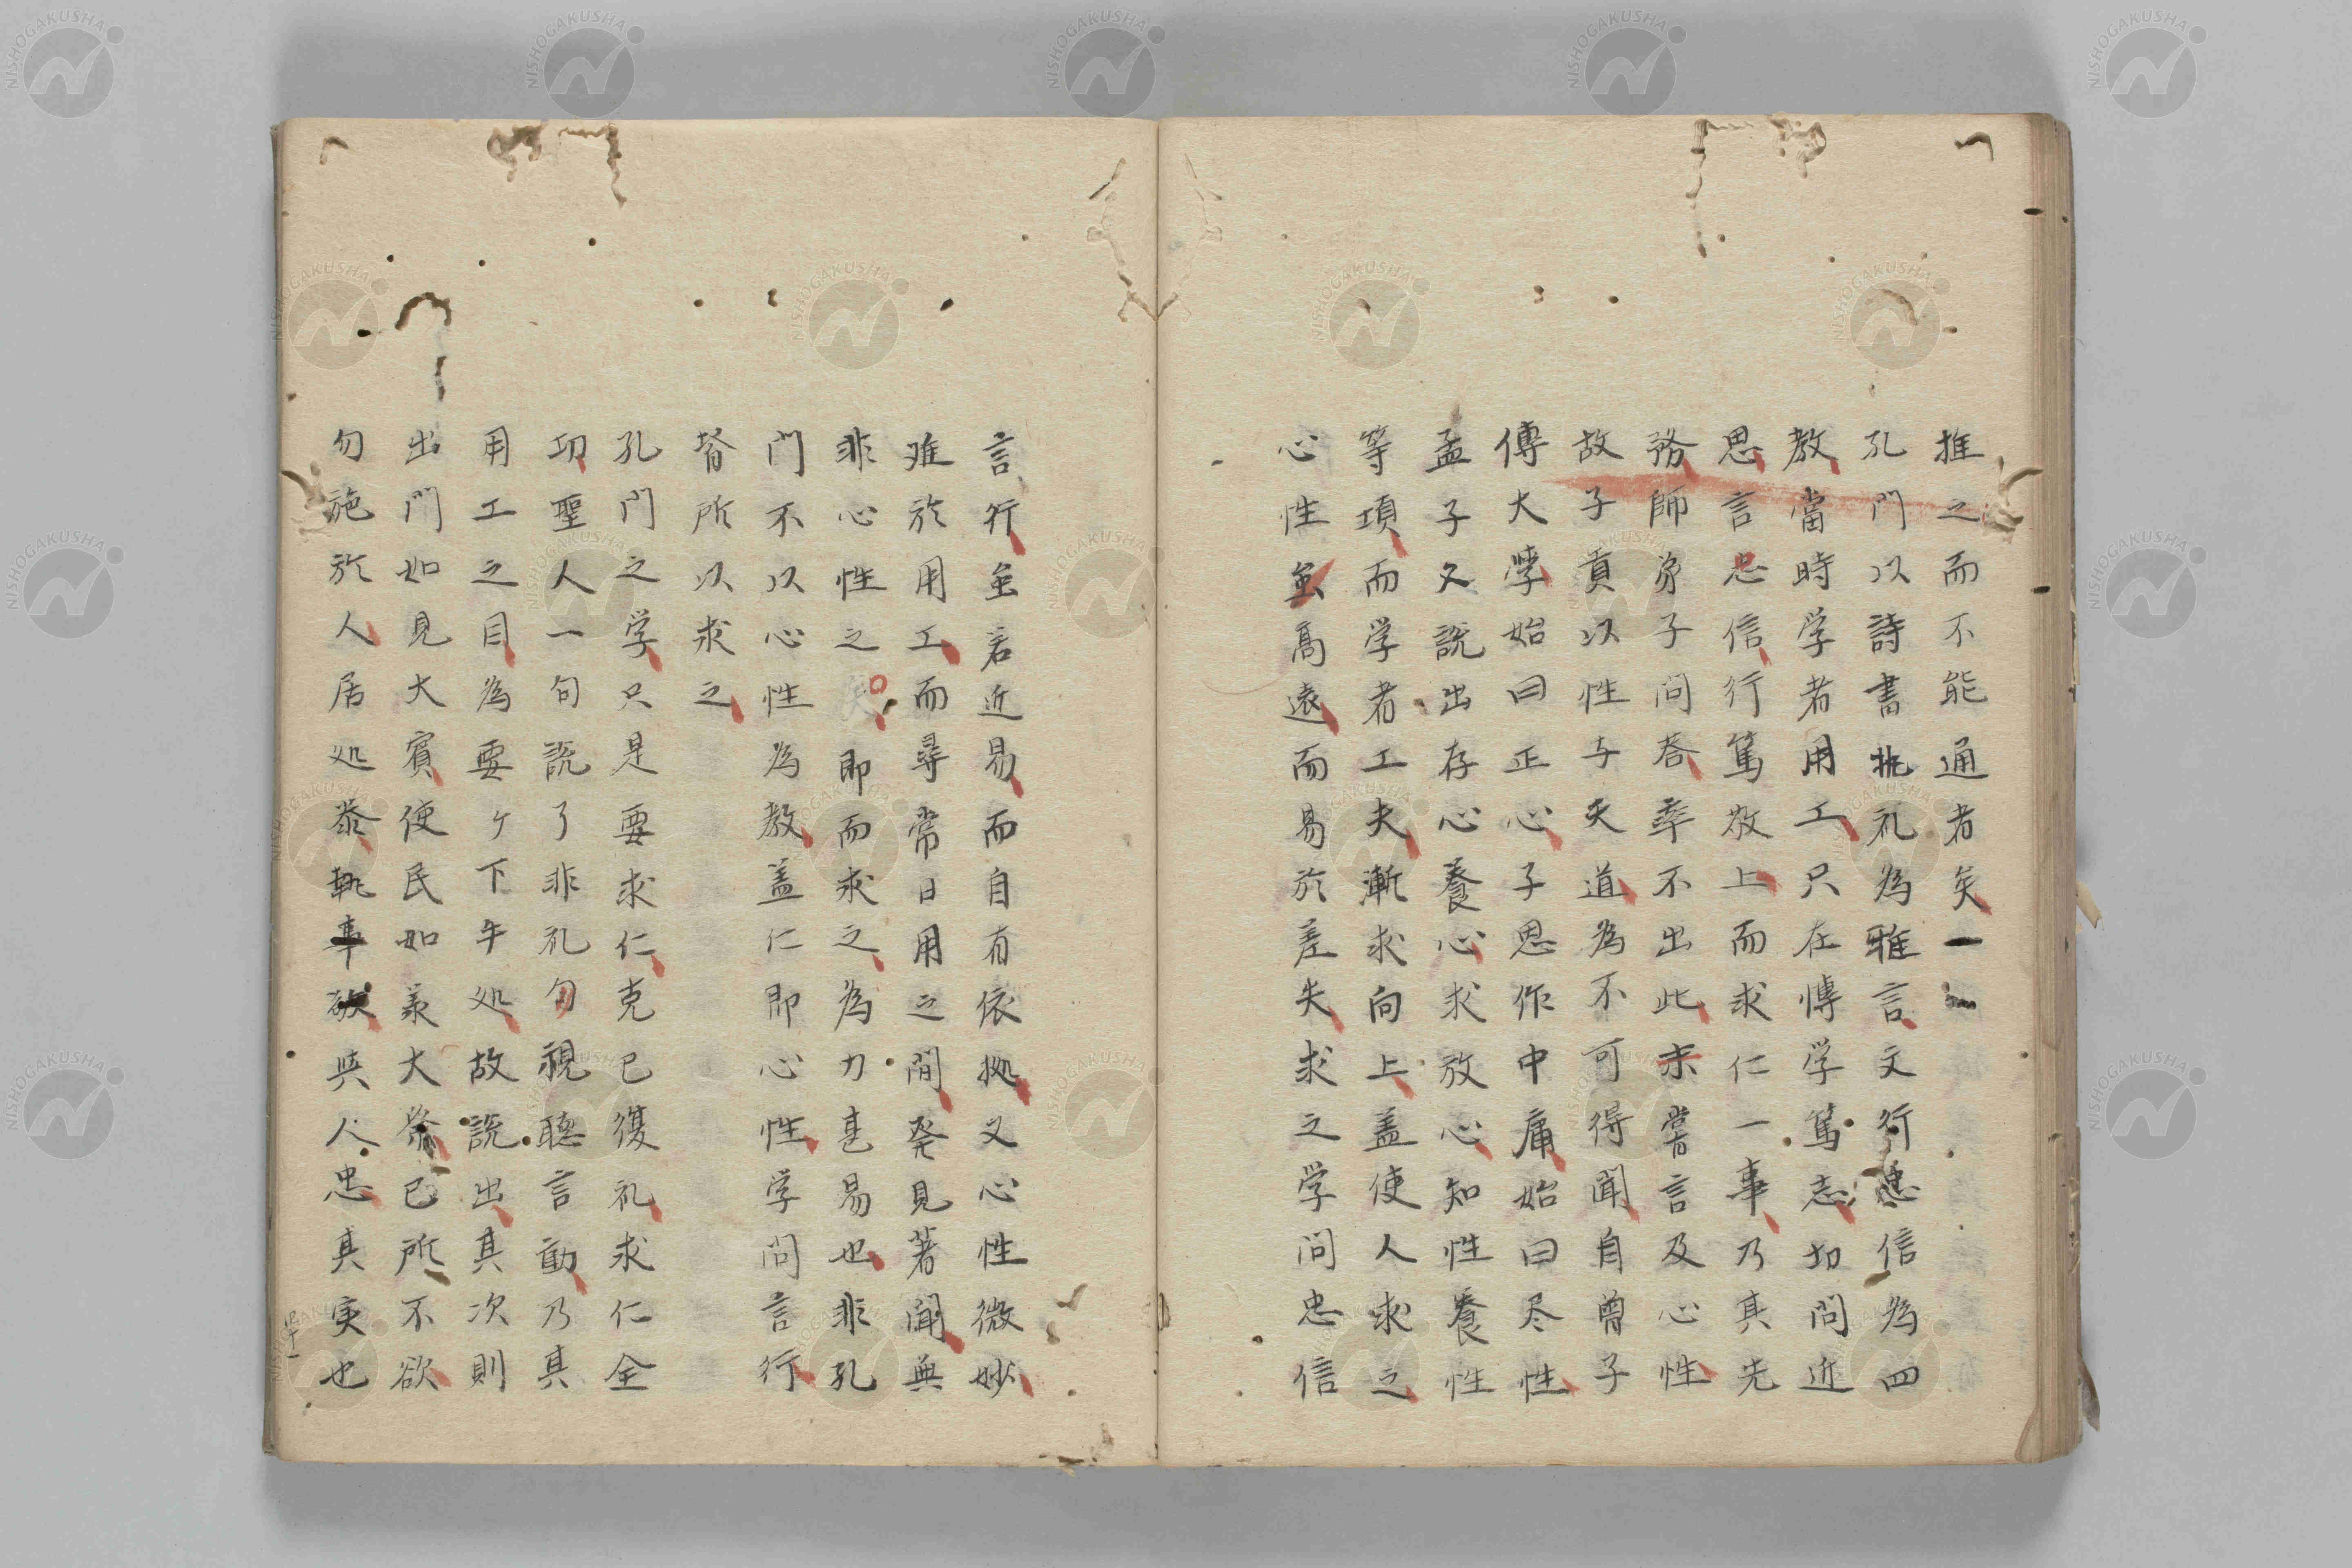 推之而不能通者矣一
孔門以詩書執礼為雅言文行忠信為四
教當時学者用工只在博学篤志切問近
思言忠信行篤敬上而求仁一事乃其先
務師弟子問荅率不出此未嘗言及心性
故子貢以性与天道為不可得聞自曽子
傳大學始曰正心子思作中庸始曰尽性
孟子又説出存心養心求放心知性養性
等項而学者工夫漸求向上盖使人求之
心性虽高遠而易於差失求之学問忠信
言行虽若近易而自有依拠又心性微妙
难於用工而尋常日用之間発見著聞無
非心性之 即而求之為力甚易也非孔
門不以心性為教盖仁即心性学問言行
督所以求之
孔門之学只是要求仁克己復礼求仁全
功聖人一句説了非礼勿視聽言動乃其
用工之目為要ケ下手処故説出其次則
出門如見大賓使民如承大祭己所不欲
勿施於人居処恭執事敬與人忠其実也
四十一
NISHOGAKUSHA